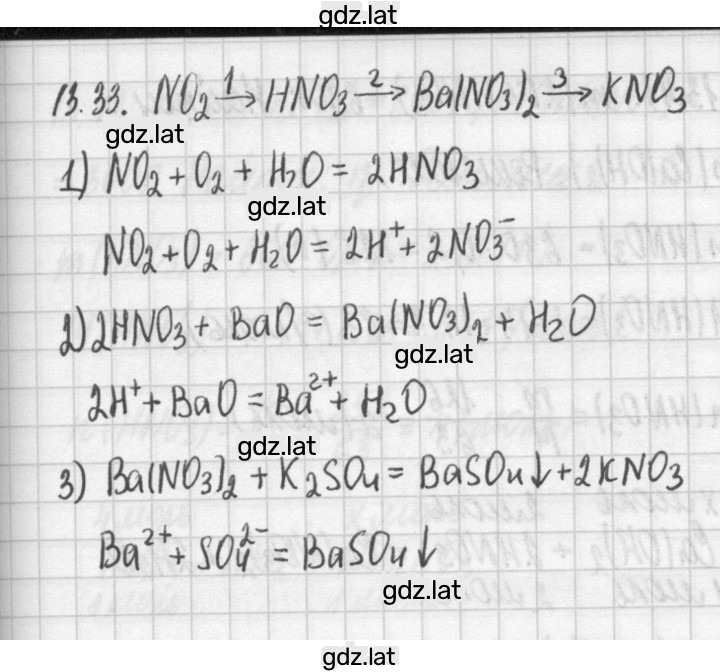 gdz.lat
13.33. NO₂ →¹ HNO₃ →² Ba(NO₃)₂ →³ KNO₃
gdz.lat
1) NO₂ + O₂ + H₂O = 2HNO₃
gdz.lat
NO₂ + O₂ + H₂O = 2H⁺ + 2NO₃⁻
2) 2HNO₃ + BaO = Ba(NO₃)₂ + H₂O
gdz.lat
2H⁺ + BaO = Ba²⁺ + H₂O
gdz.lat
3) Ba(NO₃)₂ + K₂SO₄ = BaSO₄↓ + 2KNO₃
Ba²⁺ + SO₄²⁻ = BaSO₄↓
gdz.lat
gdz.lat